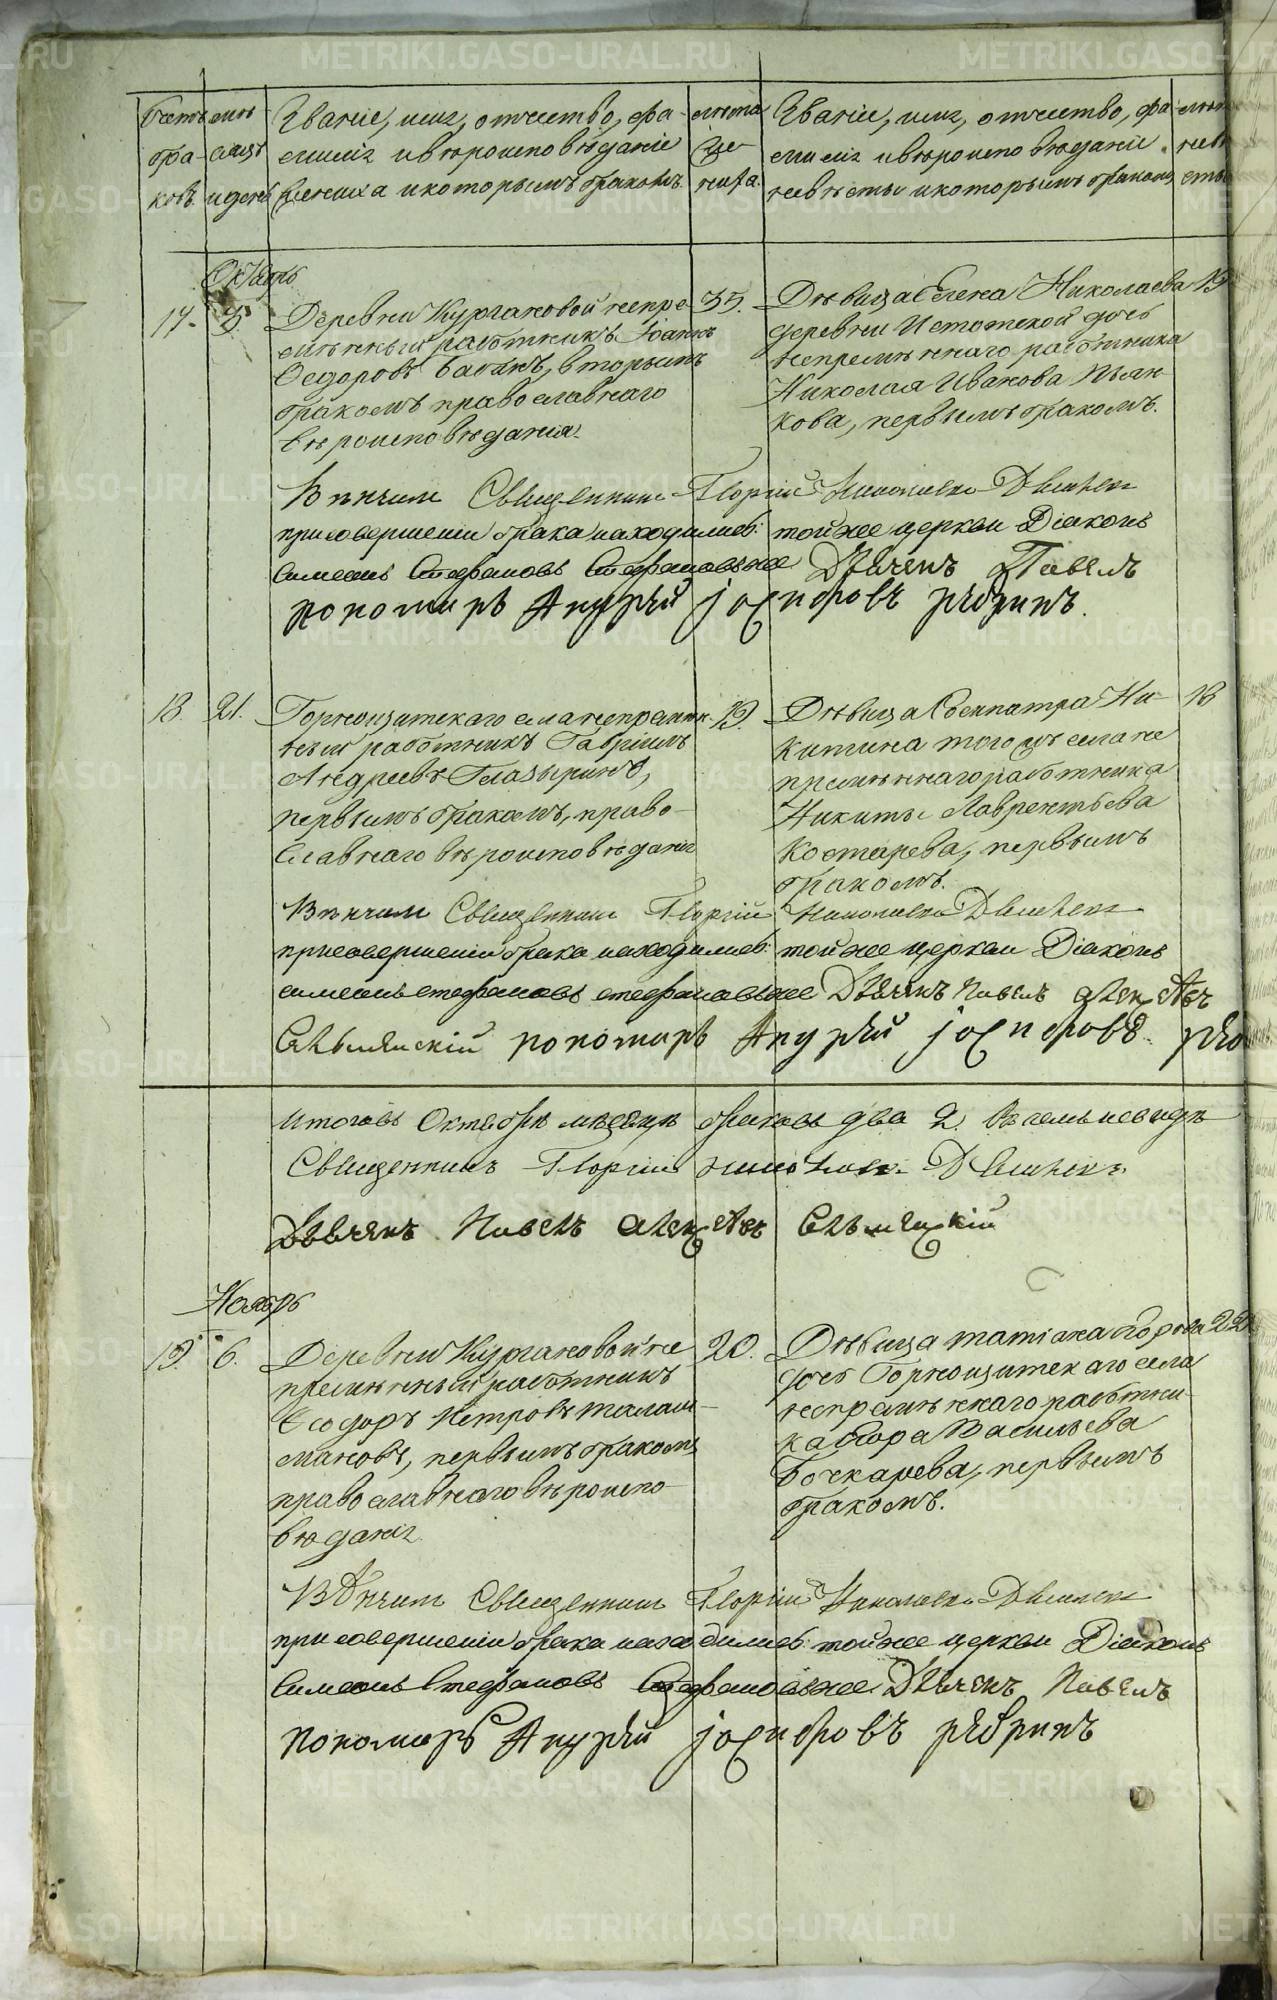 METRIKI.GASO-URAL.RU
Счетъ бра- ковъ.
мѣсяцъ и день
Званіе, имя, отчество, фа-
милія и вѣроисповѣданіе
жениха и которымъ бракомъ.
лѣта же- ниха.
Званіе, имя, отчество, фа-
милія и вѣроисповѣданіе
невѣсты и которымъ бракомъ
Октябрь
17. 3. Деревни Кургановой непре-
мѣнный работникъ Іоаннъ
Ѳедоровъ Бабинъ, вторымъ
бракомъ православнаго
вѣроисповѣданія.
35.
Дѣвица Елена Николаева
деревни Истотской дочь
непремѣннаго работника
Николая Иванова Пьян-
кова, первымъ бракомъ.
19
Вѣнчалъ Священникъ Георгій Николаевъ
при совершеніи брака находились: той же церкви Діаконъ
Симеонъ Стефановъ Стефановъ же Дьячекъ Павелъ
пономарь Андрѣй Іосифовъ
18. 21. Горнощитскаго села непремѣн-
ный работникъ Гавріилъ
Андреевъ Глазыринъ,
первымъ бракомъ, право-
славнаго вѣроисповѣданія
19.
Дѣвица Соснпатра Ни-
китина того жъ села не
премѣннаго работника
Никиты Лаврентьева
Костарева, первымъ
бракомъ.
18
Вѣнчалъ Священникъ Георгій Николаевъ
при совершеніи брака находились: той же церкви Діаконъ
Симеонъ Стефановъ Стефановъ же Дьячекъ Павелъ Алексѣевъ
пономарь Андрѣй Іосифовъ
Итого въ Октябрѣ мѣсяцѣ браковъ два 2.
Священникъ Георгій Николаевъ
Дьячекъ Павелъ Алексѣевъ
Ноябрь
19. 6. Деревни Кургановой не
премѣнный работникъ
Ѳеодоръ Петровъ Талаш-
мановъ, первымъ бракомъ
православнаго вѣроиспо-
вѣданія
20.
Дѣвица Татіана Егорова
дочь Горнощитскаго села
непремѣннаго работни-
ка Егора Васильева
Бочкарева, первымъ
бракомъ.
22
Вѣнчалъ Священникъ Георгій Николаевъ
при совершеніи брака находились: той же церкви Діаконъ
Симеонъ Стефановъ Стефановъ же Дьячекъ Павелъ
пономарь Андрѣй Іосифовъ